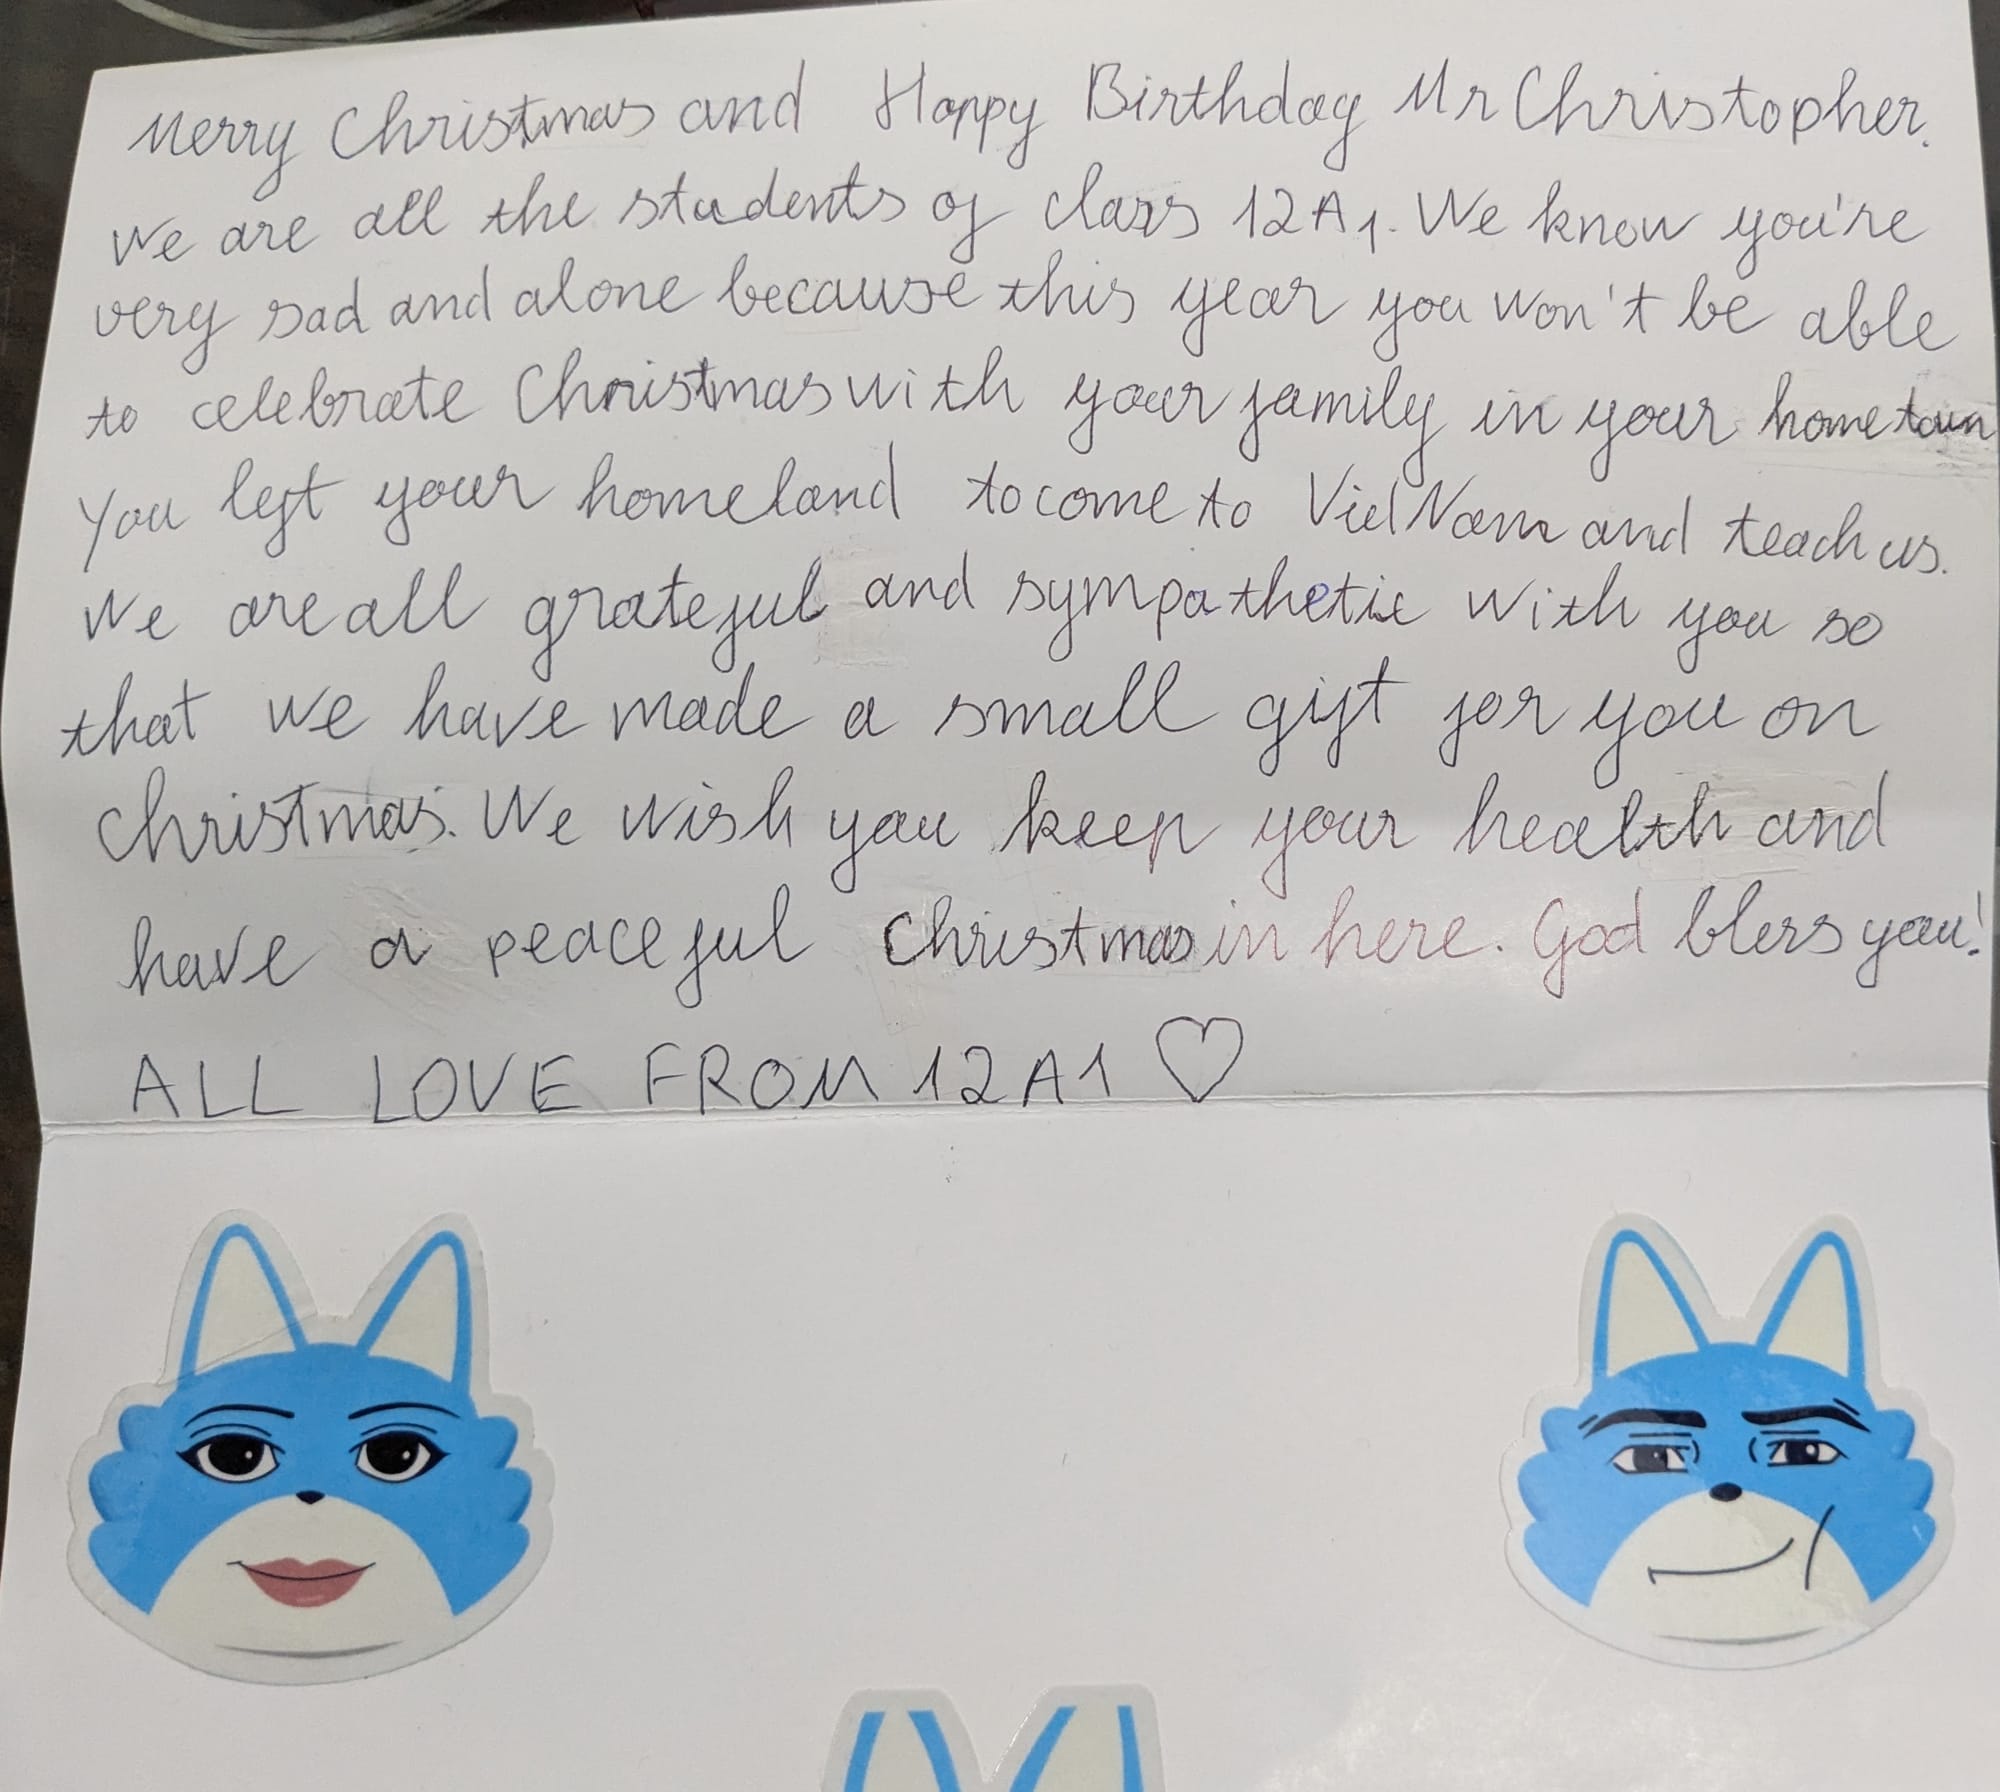 Merry Christmas and Happy Birthday Mr Christopher.
We are all the students of class 12A1. We know you're
very sad and alone because this year you won't be able
to celebrate Christmas with your family in your hometown
You left your homeland to come to Viet Nam and teach us.
We are all grateful and sympathetic with you so
that we have made a small gift for you on
Christmas. We wish you keep your health and
have a peaceful Christmas in here. God bless you!
ALL LOVE FROM 12A1 ♡